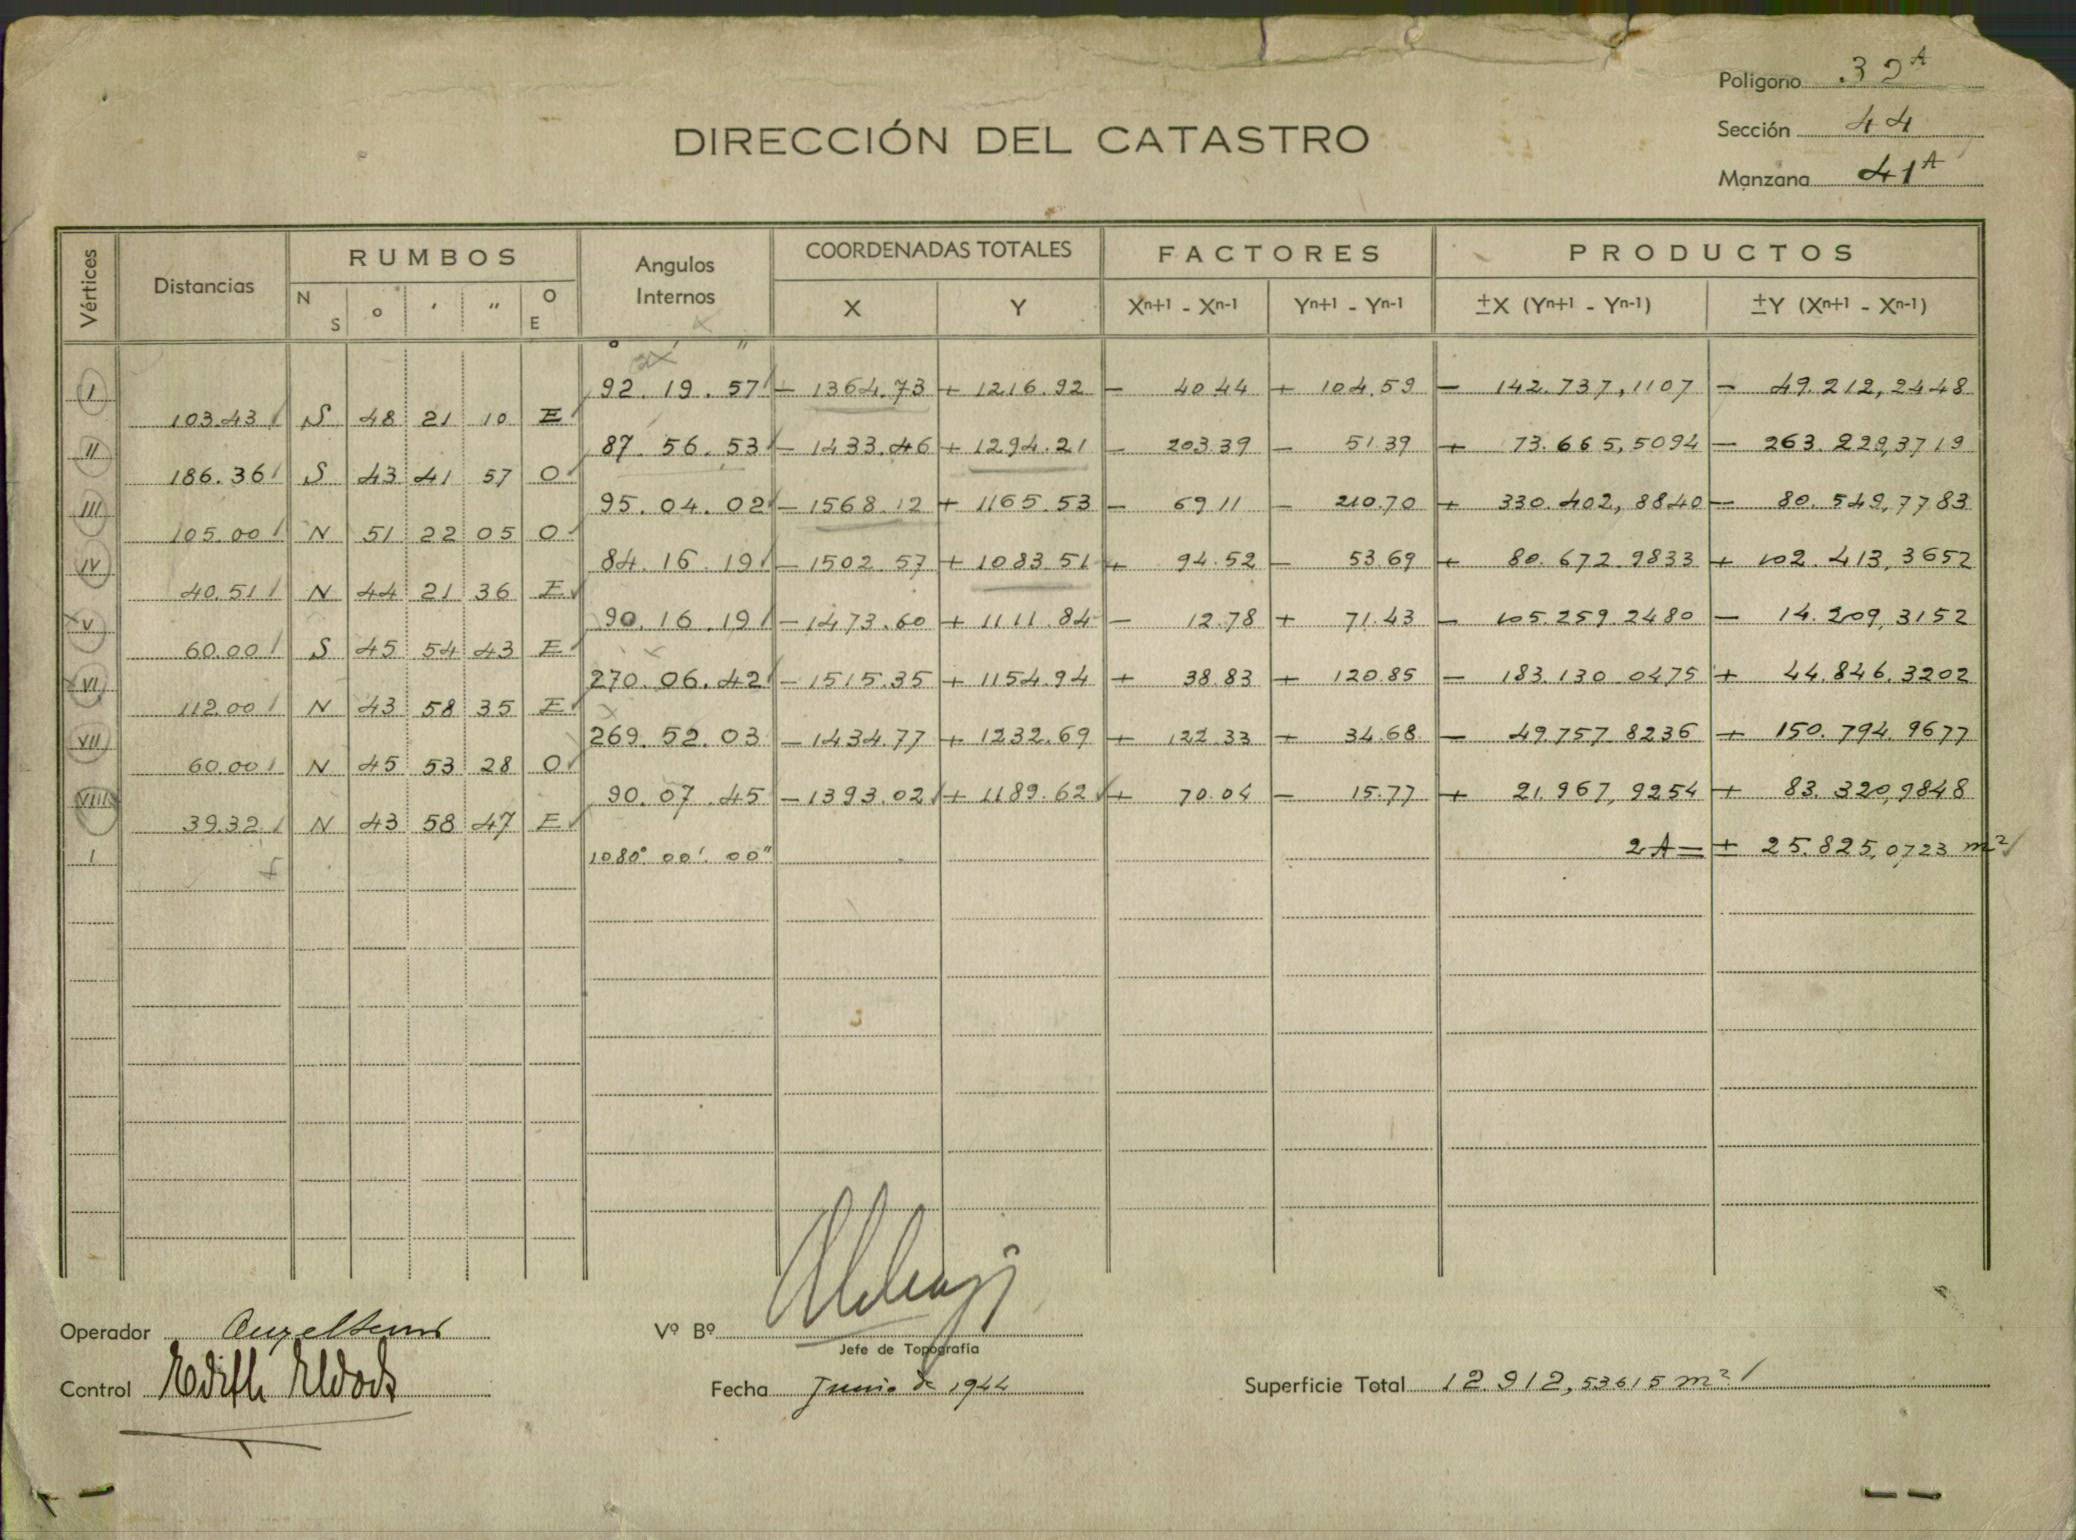 Polígono 39A
Sección 44
Manzana 41A
DIRECCIÓN DEL CATASTRO
Vértices Distancias RUMBOS Angulos Internos COORDENADAS TOTALES FACTORES PRODUCTOS
N S o ' " O E X Y Xn+1 - Xn-1 Yn+1 - Yn-1 ±X (Yn+1 - Yn-1) ±Y (Xn+1 - Xn-1)
o ' "
I 92. 19. 57 - 1364.73 + 1216.92 - 40.44 + 104.59 - 142.737,1107 - 49.212,2448
103.43 S 48 21 10 E
II 87 56. 53 - 1433.46 + 1294.21 - 203.39 - 51.39 + 73.665,5094 - 263.229,3719
186.36 S 43 41 57 O
III 95. 04. 02 - 1568.12 + 1165.53 - 69.11 - 210.70 + 330.402,8840 - 80.549,7783
105.00 N 51 22 05 O
IV 84. 16. 19 - 1502.57 + 1083.51 + 94.52 - 53.69 + 80.672.9833 + 102.413,3652
40.51 N 44 21 36 E
V 90. 16. 19 - 1473.60 + 1111.84 - 12.78 + 71.43 - 105.259.2480 - 14.209,3152
60.00 S 45 54 43 E
VI 270. 06. 42 - 1515.35 + 1154.94 + 38.83 + 120.85 - 183.130.0475 + 44.846.3202
112.00 N 43 58 35 E
VII 269. 52. 03 - 1434.77 + 1232.69 + 122.33 + 34.68 - 49.757.8236 + 150.794.9677
60.00 N 45 53 28 O
VIII 90. 07. 45 - 1393.02 + 1189.62 + 70.04 - 15.77 + 21.967,9254 + 83.320,9848
39.32 N 43 58 47 E
I 1080° 00' 00" 2A = ± 25.825,0723 m²
Operador
Vº Bº
Jefe de Topografía
Control
Fecha Junio de 1944
Superficie Total 12.912,53615 m²